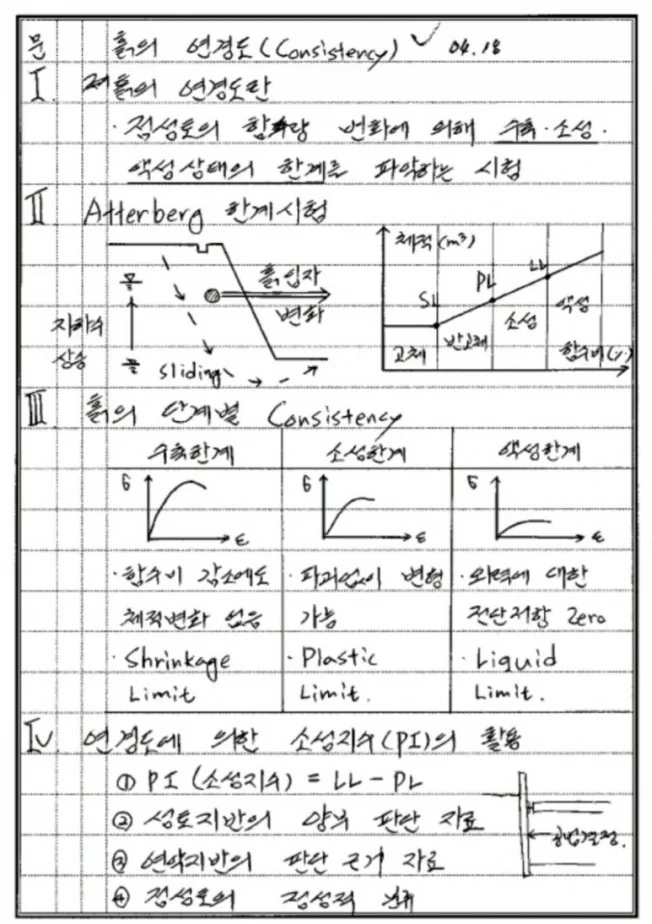 문 흙의 연경도(Consistency) 04.18
I. 흙의 연경도란
· 점성토의 함수량 변화에 의해 수축·소성·
액성상태의 한계를 파악하는 시험
II Atterberg 한계시험
지하수
상승
sliding
흙입자
변화
체적(m³)
SL
PL
LL
고체
반고체
소성
액성
함수비(%)
III 흙의 단계별 Consistency
수축한계 소성한계 액성한계
σ ε σ ε σ ε
· 함수비 감소에도 · 파괴없이 변형 · 외력에 대한
체적변화 없음 가능 전단저항 Zero
· Shrinkage · Plastic · Liquid
Limit Limit. Limit.
IV 연경도에 의한 소성지수(PI)의 활용
① PI (소성지수) = LL - PL
② 성토지반의 양부 판단 자료
③ 연약지반의 판단 근거 자료
공법결정.
④ 점성토의 정성적